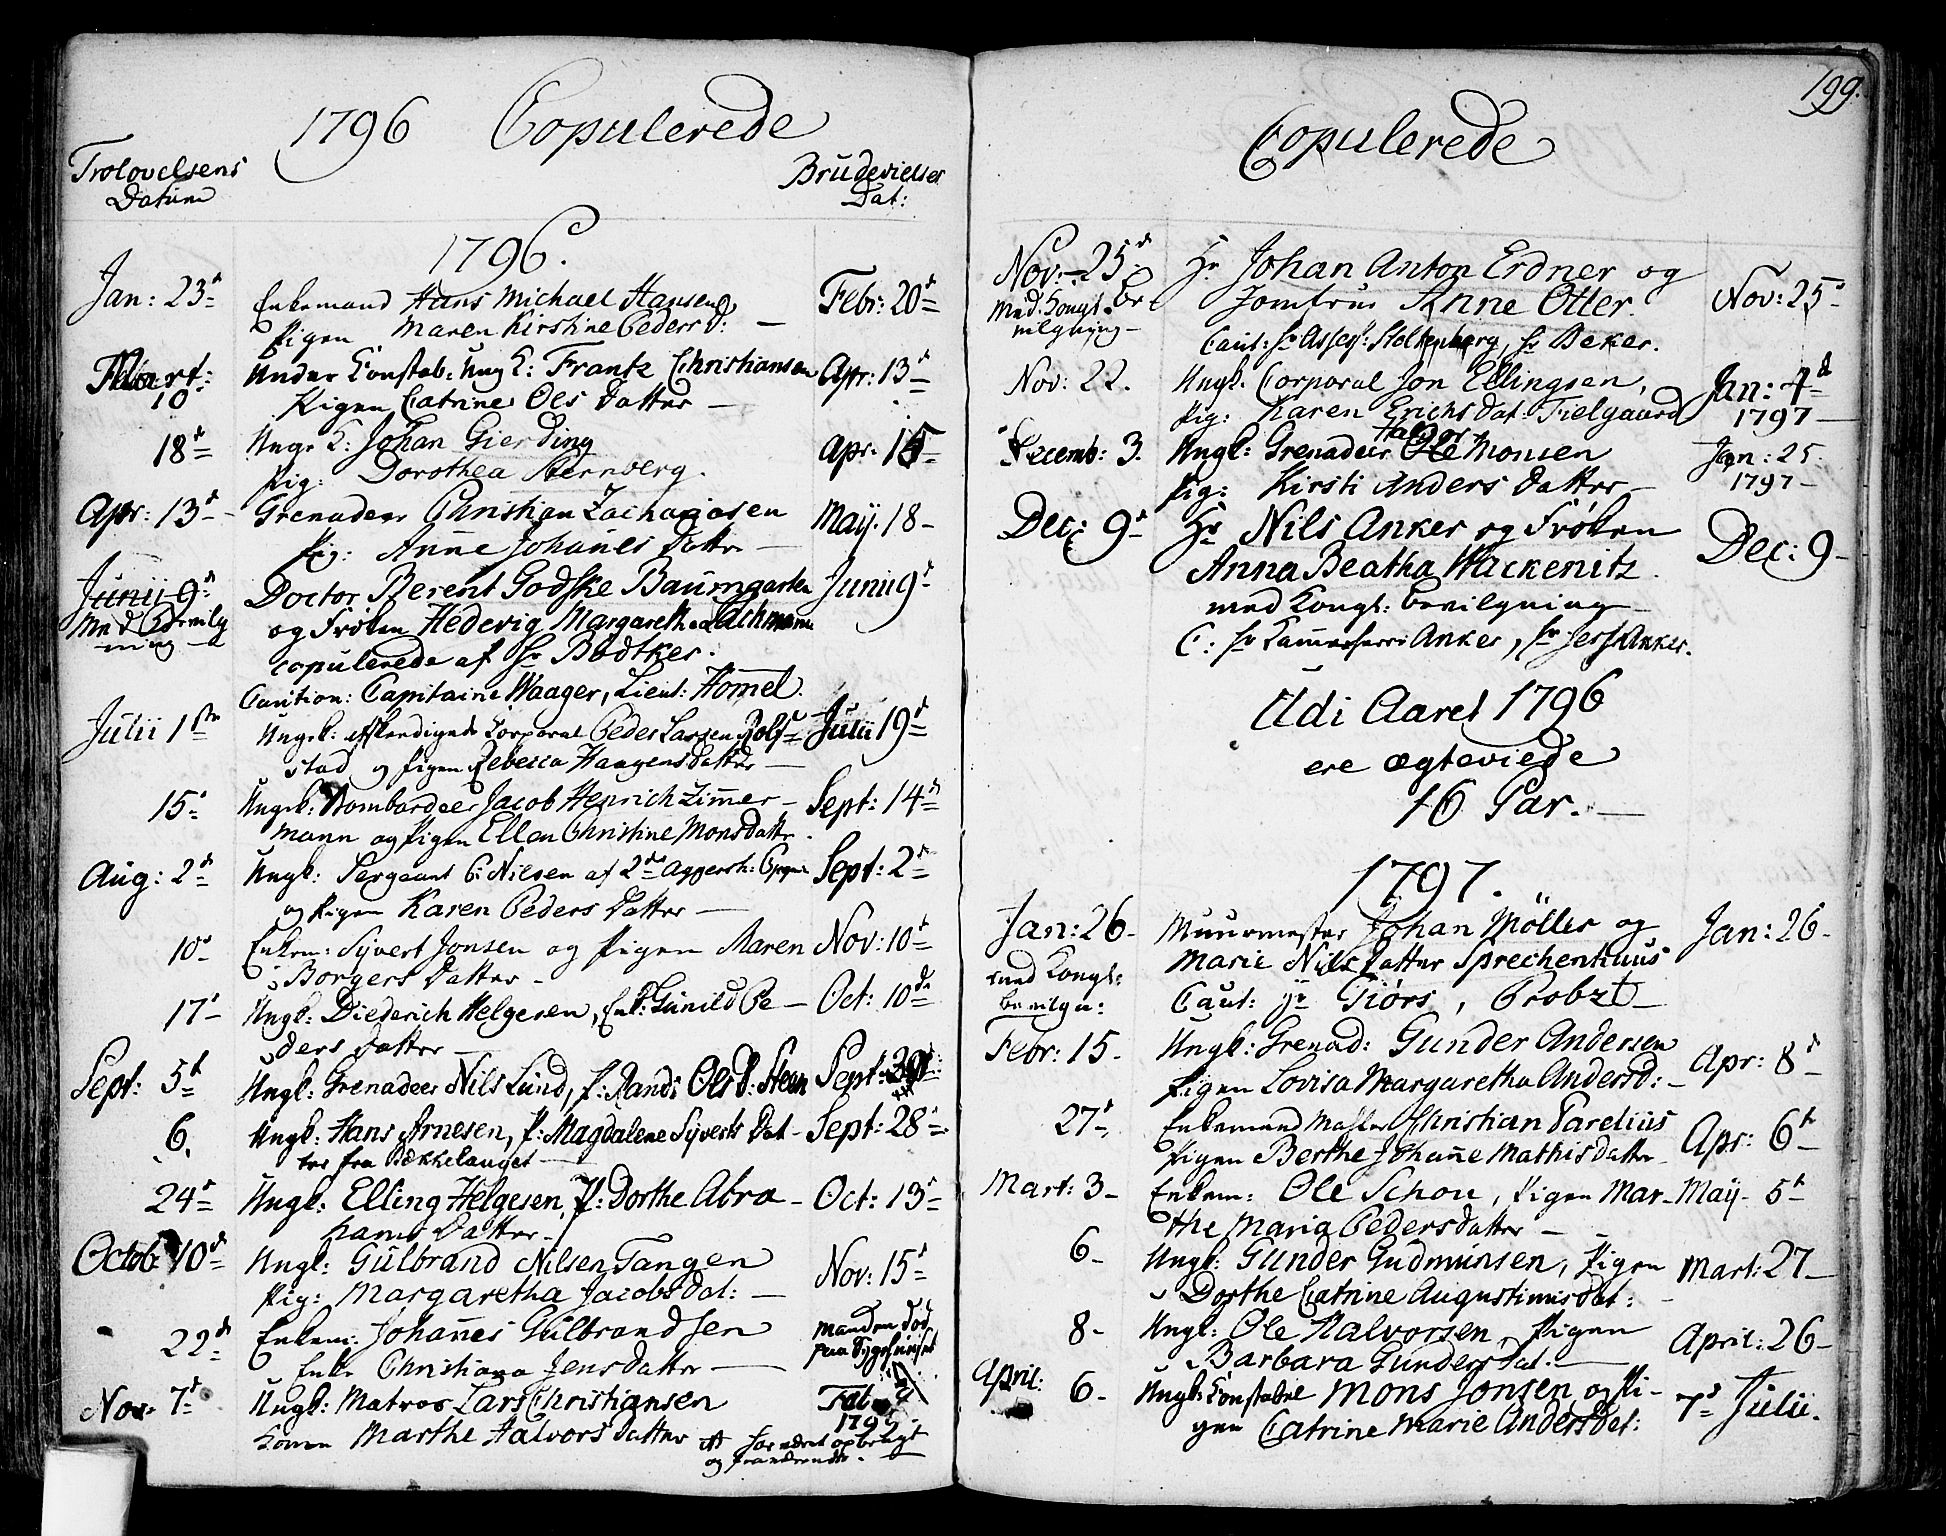 1796 Copulerede
Trolovelsens
Datum
Brudevielses
Dat:
1796.
Jan: 23d
Enkemand Hans Michael Hansen
Febr: 20d
Pigen Maren Kirstine Pedersd: —
Mart:
10
Under Constab: Ung K: Frantz Christiansen
Apr: 13d
Pigen Catrine Ols Datter —
18d
Unge K: Johan Gierding
Apr: 15
Pig: Dorothea Sternberg.
Apr: 13d
Grenadeer Christian Zachariasen
May. 18 –
Pig: Anne Johanes Datter —
Junii 9d
Doctor Berent Godske Baumgarten
Junii 9d
Med Bevilg
ning —
og Frøken Hedevig Margaretha Lachmann
copulerede af Hr Bødtker.
Caution: Capitaine Waager, Lieut: Homel.
Julii 1ste
Ungk: Afskendigede Corporal Peder Larsen Rolf
Julii 19d
stad og Pigen Rebecca Haagensdatter —
15d
Ungk: Bombardeer Jacob Henrich Zimer –
Sept: 14d
mann og Pigen Ellen Christine Monsdattr.
Aug: 2d
Ungk: Sergeant C: Nilsen af 2de Aggersh:
Sept: 2d
og Pigen Karen Peders Datter —
10d
Enkem: Syvert Jonsen og Pigen Maren
Nov: 10d
Borgers Datter –
17d
Ungk: Diederich Helgesen, Enk: Gunild Pe –
Oct: 10de
ders Datter —
Sept: 5d
Ungk: Grenadeer Nils Lund, P: Randi Olsd: Steen
Sept:
6.
Ungk: Hans Arnesen, P: Magdalene Syverts Dat –
Sept: 28d
ter fra Bekkelauget —
24d
Ungk: Elling Helgesen, P: Dorthe Abra –
Oct: 13d
hams Datter –
Octob 10d
Ungk: Gulbrand Nilsen Tangen
Nov: 15d
Pig: Margaretha Jacobs dat: —
22d
Enkem: Johannes Gulbrandsen
Manden død
paa Sygehuuset
Enke Christiana Jens Datter —
Nov: 7d
Ungk: Matros Lars Christiansen
Feb
179
Konen Marthe Halvors Datter
og
199.
Copulerede
Nov: 25d
Med Kongl. Be
vilgning –
Hr Johan Anton Erdner og
Nov: 25d
Jomfrue Anne Otter.
Caut: Hr Assess: Stoltenberg, Hr Beker.
Nov: 22.
Ungk. Corporal Jon Ellingsen,
Jan: 4d
1797 —
Pig: Karen Erichs dat: Fielgaard
Decemb: 3.
Halvor
Ungk: Grenadeer Ole Monsen
Jan: 25.
1797 –
Pig: Kirsti Anders Datter —
Dec: 9d
Hr Nils Anker og Frøken
Dec: 9 –
Anna Beatha Wackenitz.
med Kongl: Bevilgning —
C: Hr Kammerherre Anker, Hr Jess Anker.
Udi Aaret 1796
ere ægteviede
16 Par. —
1797.
Jan: 26 –
med Kongl:
bevilgn:
Muurmester Johan Möller og
Jan: 26 –
Marie Nils Datter Sprechenhuus
Caut: Hr Giørs, Probzt —
Febr: 15 –
Ungk: Grenad: Gunder Andersen
Apr: 8d
Pigen Lovisa Margaretha Andersd: –
27d
Enkemand Christian Parelius
Apr: 6te
Pigen Berthe Johanne Mathisdatter –
Mart: 3 –
Enkem: Ole Schou, Pigen Mar –
May – 5d
the Maria Pedersdatter —
6 –
Ungk: Gunder Gudmunsen, Pigen
Mart: 27 –
Dorthe Catrine Augustinusdat:
8 –
Ungk: Ole Halvorsen, Pigen
April: 26 –
Barbara Gundersdat. —
April: 6 –
Ungk: Constabel Mons Jonsen og Pi –
7d Julii.
gen Catrine Marie Andersdat: